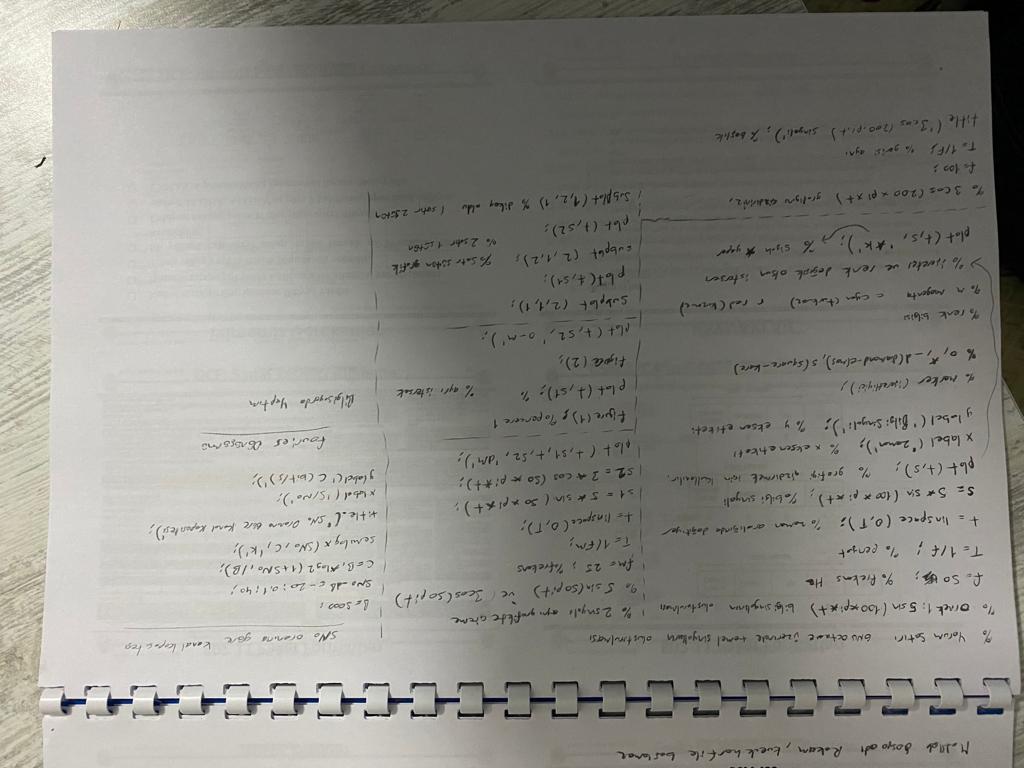 Matlab dosya adı Rakam, Türkçe harf ile başlamaz
% Yorum satırı GNU octave üzerinde temel sinyallerin oluşturulması
% Örnek 1: 5 sin (100*pi*t) bilgi singalinin oluşturulması
f = 50; % Frekans Hz
T = 1/f; % peryot
t = linspace (0,T); % zaman aralığında dağıtıyor
s = 5 * sin (100 * pi * t); % bilgi singali
plot (t,s); % grafiği çizdirmek için kullanılır.
xlabel ('zaman'); % x eksen etiketi
ylabel ('Bilgi Singali'); % y eksen etiketi
% marker (işaretleyici);
% o, *, -, d (diamond-elmas), s (square-kare)
% renk bilgisi
% m magenta c cyan (turkuaz) r red (kırmızı)
% işaretçi ve renk değişik olsun istersen
plot (t,s, '*k'); % siyah * yapar
% 3 cos (200 * pi * t) grafiğini çizdiriniz;
f = 100;
T = 1/F; % gerisi aynı
title ('3 cos (200.pi.t) singali'); % başlık
% 2 singali aynı grafikte çizme
% 5 sin (50pit) ve 3cos (50pit)
fm = 25; % frekans
T = 1/fm;
t = linspace (0,T);
s1 = 5 * sin (50 * pi * t);
s2 = 3 * cos (50 * pi * t);
plot (t,s1,t,s2,'dm');
figure (1); % pencere 1
plot (t,s1); % % ayrı istersek
figure (2);
plot (t,s2,'o-m');
subplot (2,1,1);
plot (t,s1);
subplot (2,1,2); % satır sütun grafik
% 2 satır 1 sütun
plot (t,s2);
subplot (1,2,1) % dikey oldu 1 satır 2 sütun
SNo oranına göre kanal kapasitesi
B = 5000;
SNo_db = -20:0.1:40;
C = B.*log2 (1+SNo./B);
semilogx (SNo, C, 'k');
title ('SNo Oranına Göre Kanal Kapasitesi');
xlabel ('S/No');
ylabel ('C (bit/s)');
Fourier Dönüşümü
Bilgisayarda Yaptım